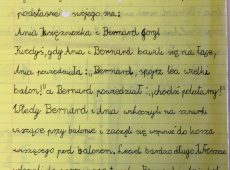 podstawie swojego na:
Ania Księżniczka i Bernard Goryl
Kiedyś, gdy Ania i Bernard bawili się na łące,
Ania powiedziała: „Bernard, spójrz ten wielki
balon!" a Bernard powiedział: „chodź polatamy!"
Wtedy Bernard i Ania wskoczyli na sznurki
wiszące przy balonie i zaczęli się wspinać do kosza
wiszącego pod balonem. Lecieli bardzo długo. Wreszcie